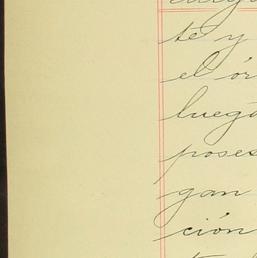 te y
el ór
luego
poses
gan
ción